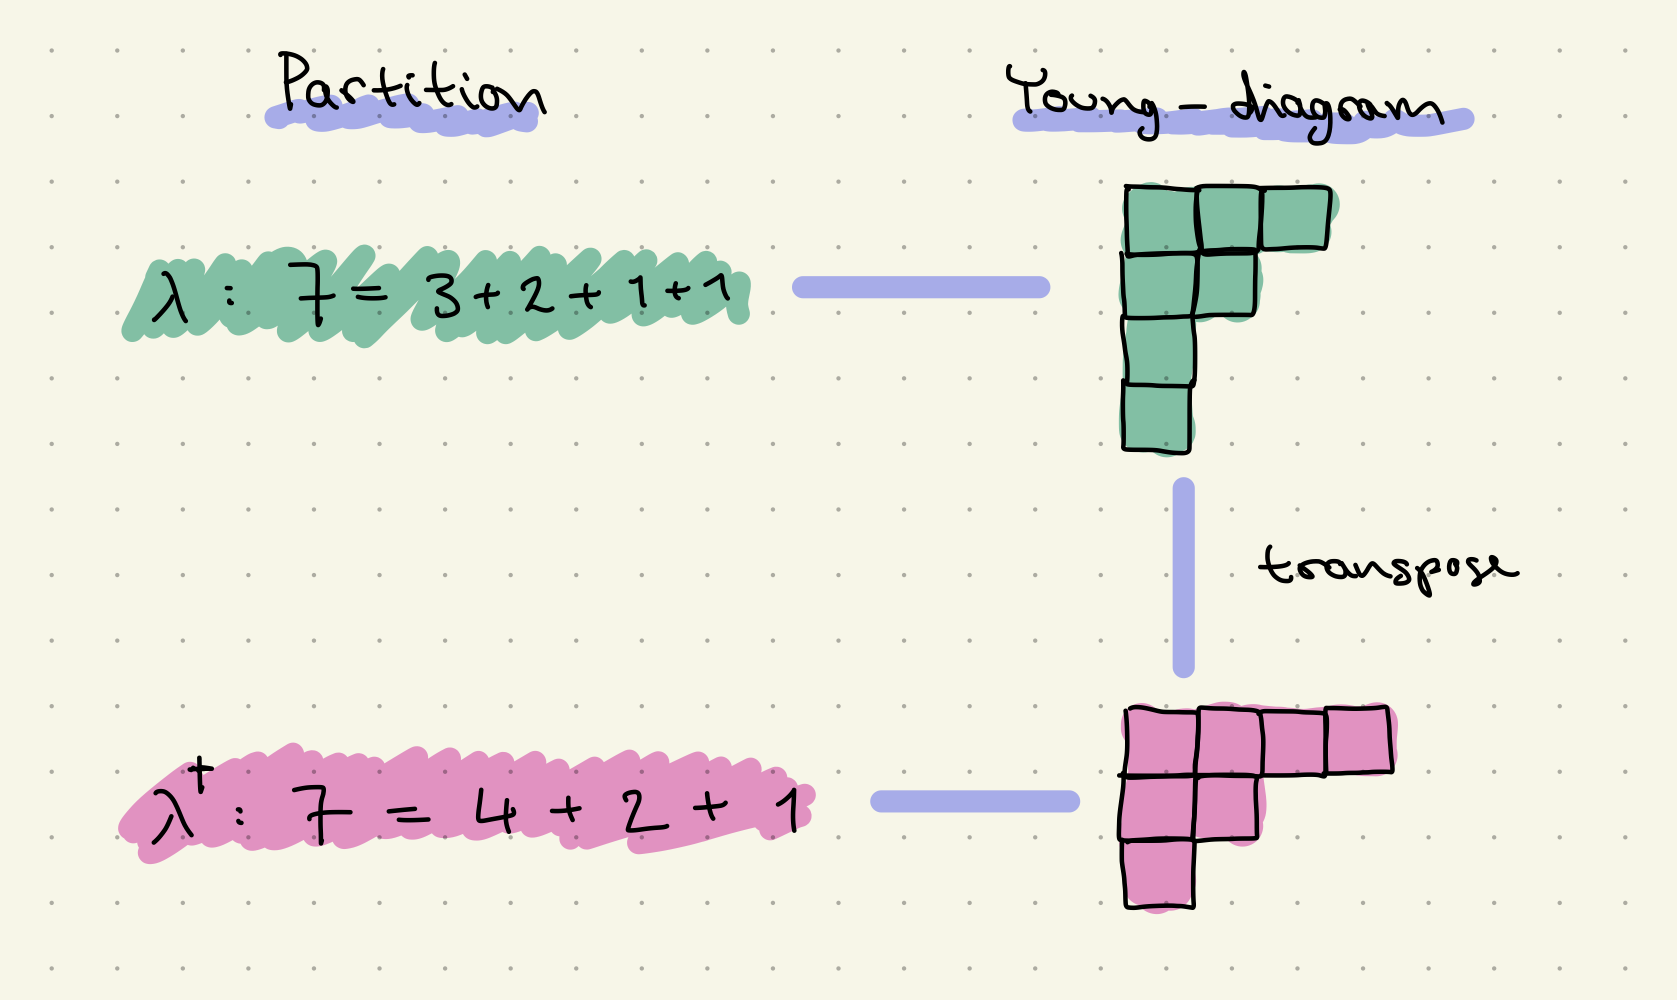 Partition
Young-diagram
λ : 7 = 3 + 2 + 1 + 1
transpose
λ† : 7 = 4 + 2 + 1